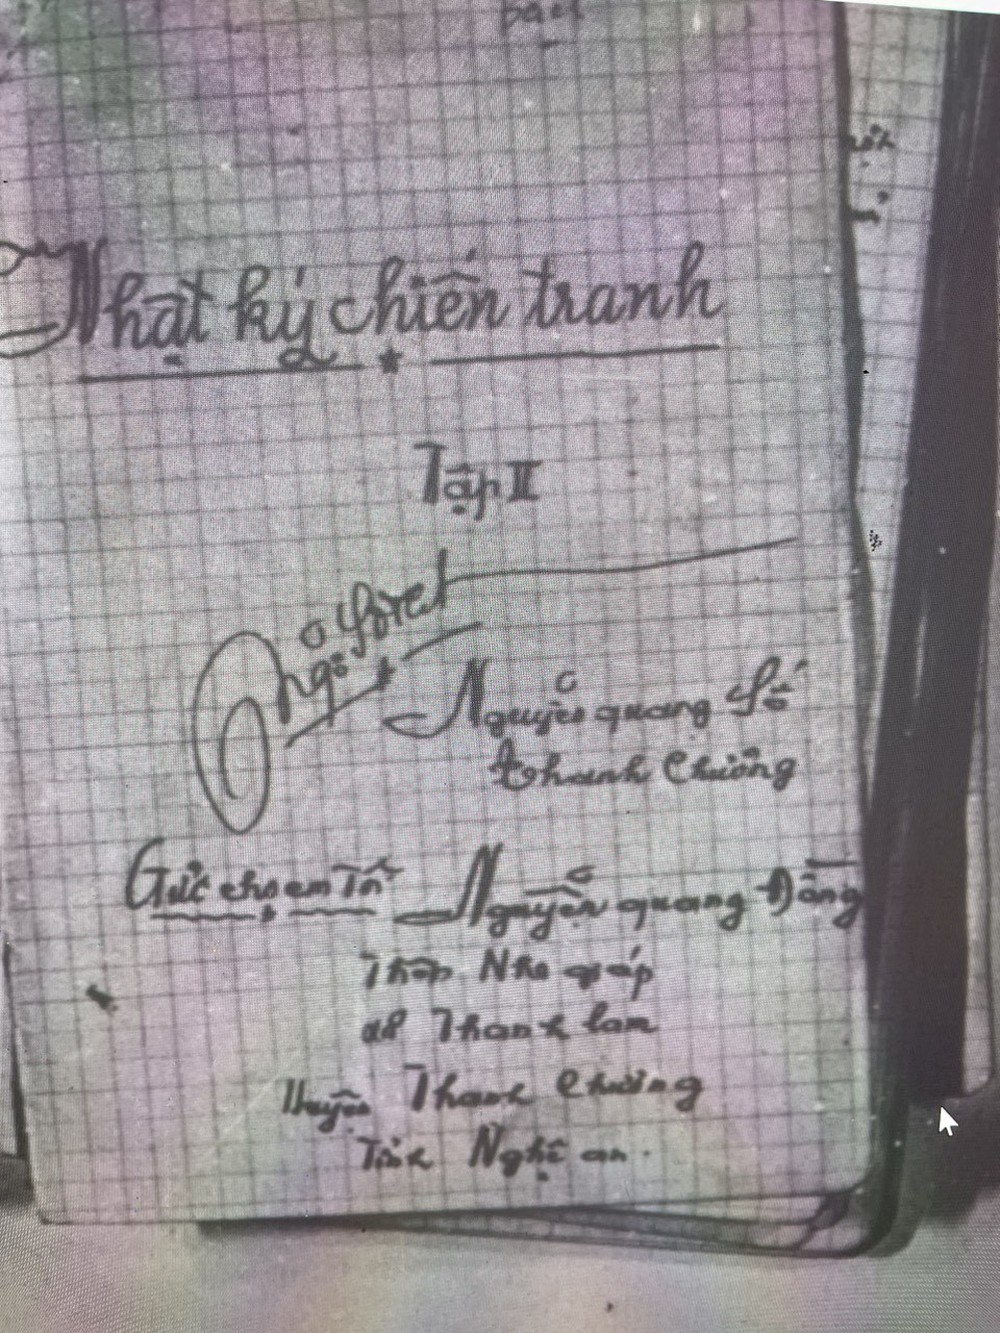 Nhật ký chiến tranh
Tập II
Nguyễn quang Số
thanh Chương
Gửi cho em Tôi Nguyễn quang Đồng
Thôn Nho giáp
xã Thanh lam
Huyện Thanh Chương
Tỉnh Nghệ an.